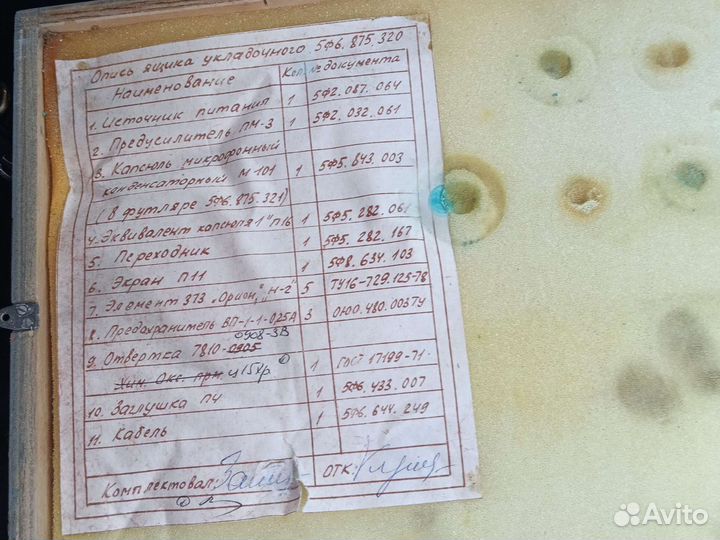 Опись ящика укладочного 5Ф6.875.320
Наименование Кол. № документа
1. Источник питания 1 5Ф2.087.064
2. Предусилитель ПМ-3 1 5Ф2.032.061
3. Капсюль микрофонный
конденсаторный М 101 1 5Ф5.843.003
(в футляре 5Ф6.875.321)
4. Эквивалент капсюля 1" П16 1 5Ф5.282.061
5. Переходник 1 5Ф5.282.167
6. Экран П11 1 5Ф8.634.103
7. Элемент 373 „Орион", „М-2" 5 ТУ16-729.125-78
8. Предохранитель ВП-1-1-0,25А 3 ОЮ0.480.003ТУ
0908-3В
9. Отвертка 7810-0905
Хим. Окс. прм. ц15хр 1 ГОСТ 17199-71
10. Заглушка П4 1 5Ф6.433.007
11. Кабель 1 5Ф6.644.249
Комплектовал: ОТК:
Avito